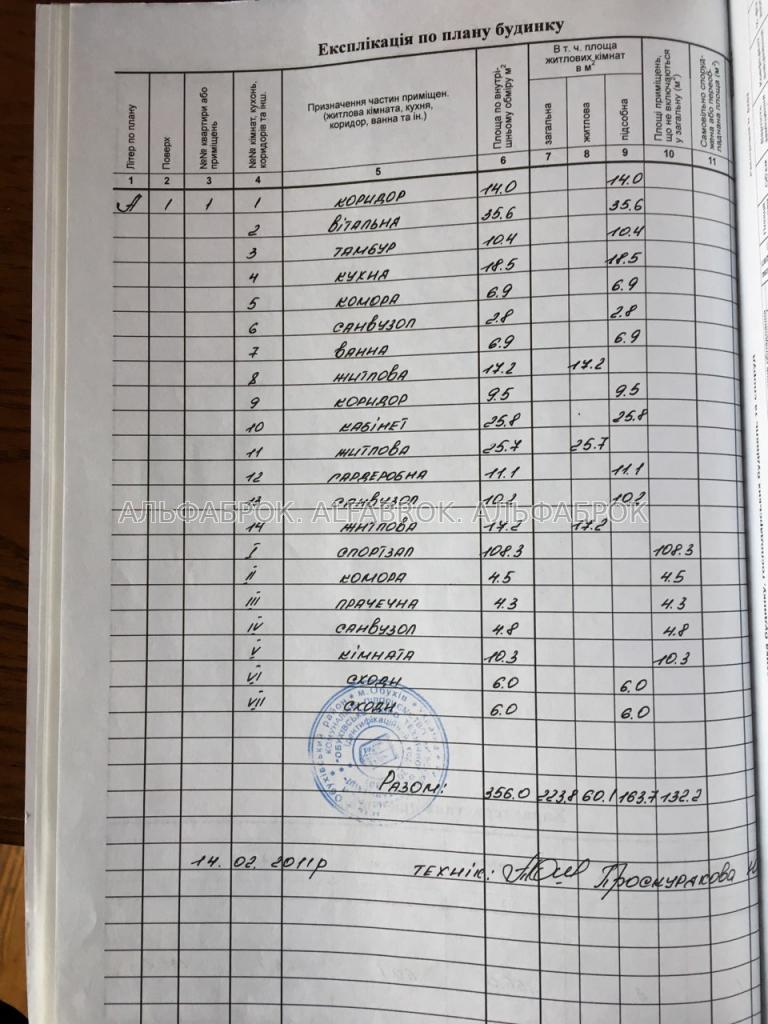 Експлікація по плану будинку
Літер по плану
Поверх
№№ квартири або приміщень
№№ кімнат, кухонь, коридорів та інш.
Призначення частин приміщен.
(житлова кімната, кухня,
коридор, ванна та ін.)
Площа по внутрі-
шньому обміру м²
В т. ч. площа
житлових кімнат
в м²
загальна
житлова
підсобна
Площі приміщень,
що не включаються
у загальну (м²)
Самовільно споруд-
жена або переоб-
ладнана площа (м²)
1 2 3 4 5 6 7 8 9 10 11
А 1 1 1 коридор 14.0 14.0
2 вітальна 35.6 35.6
3 тамбур 10.4 10.4
4 кухна 18.5 18.5
5 комора 6.9 6.9
6 санвузол 2.8 2.8
7 ванна 6.9 6.9
8 житлова 17.2 17.2
9 коридор 9.5 9.5
10 кабінет 25.8 25.8
11 житлова 25.7 25.7
12 гардеробна 11.1 11.1
13 санвузол 10.2 10.2
АЛЬФАБРОК. ALFABROK. АЛЬФАБРОК
14 житлова 17.2 17.2
I спортзал 108.3 108.3
II комора 4.5 4.5
III прачечна 4.3 4.3
IV санвузол 4.8 4.8
V кімната 10.3 10.3
VI сходи 6.0 6.0
VII сходи 6.0 6.0
Разом: 356.0 223.8 60.1 163.7 132.2
14. 02. 2011р технік: Проскуракова